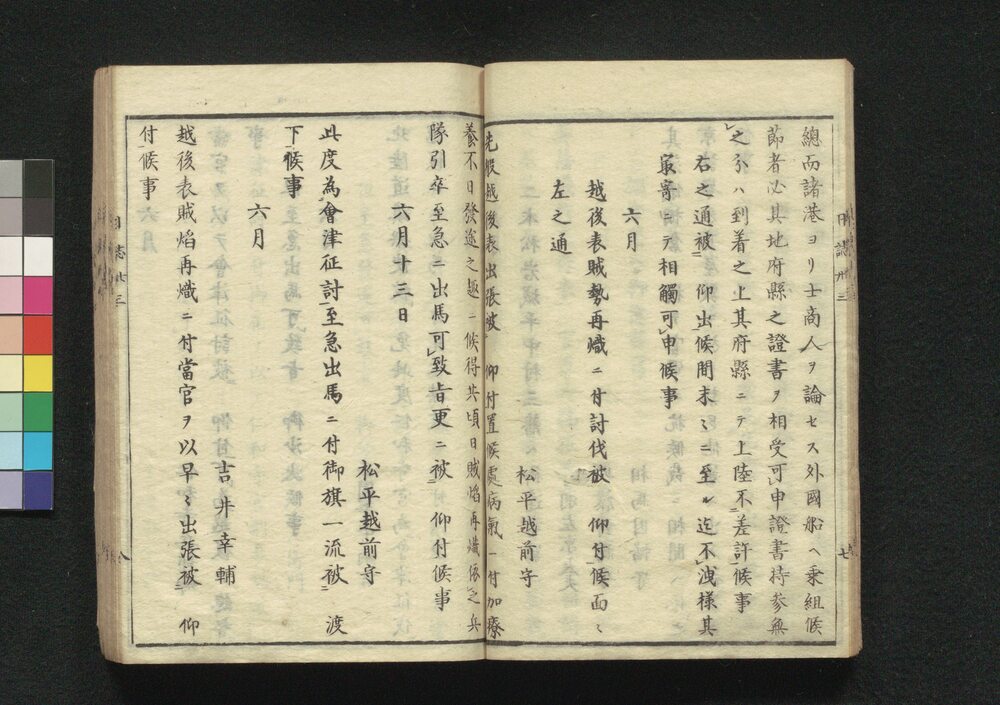 總而諸港ヨリ士商人ヲ論セス外國船ヘ乗組候
節者必其地府縣之證書ヲ相受可申證書持参無
之分ハ到着之上其府縣ニテ上陸不差許候事
右之通被 仰出候間末〻ニ至ル迄不洩様其
最寄ニテ相觸可申候事
六月
越後表賊勢再熾ニ付討伐被 仰付候面〻
左之通
松平越前守
先般越後表出張被 仰付置候處病氣ニ付加療
養不日發途之趣ニ候得共頃日賊焰再熾依之兵
隊引卒至急ニ出馬可致旨更ニ被 仰付候事
六月十三日
松平越前守
此度為會津征討至急出馬ニ付御旗一流被 渡
下候事
六月
吉井幸輔
越後表賊焰再熾ニ付當官ヲ以早〻出張被 仰
付候事
七
八